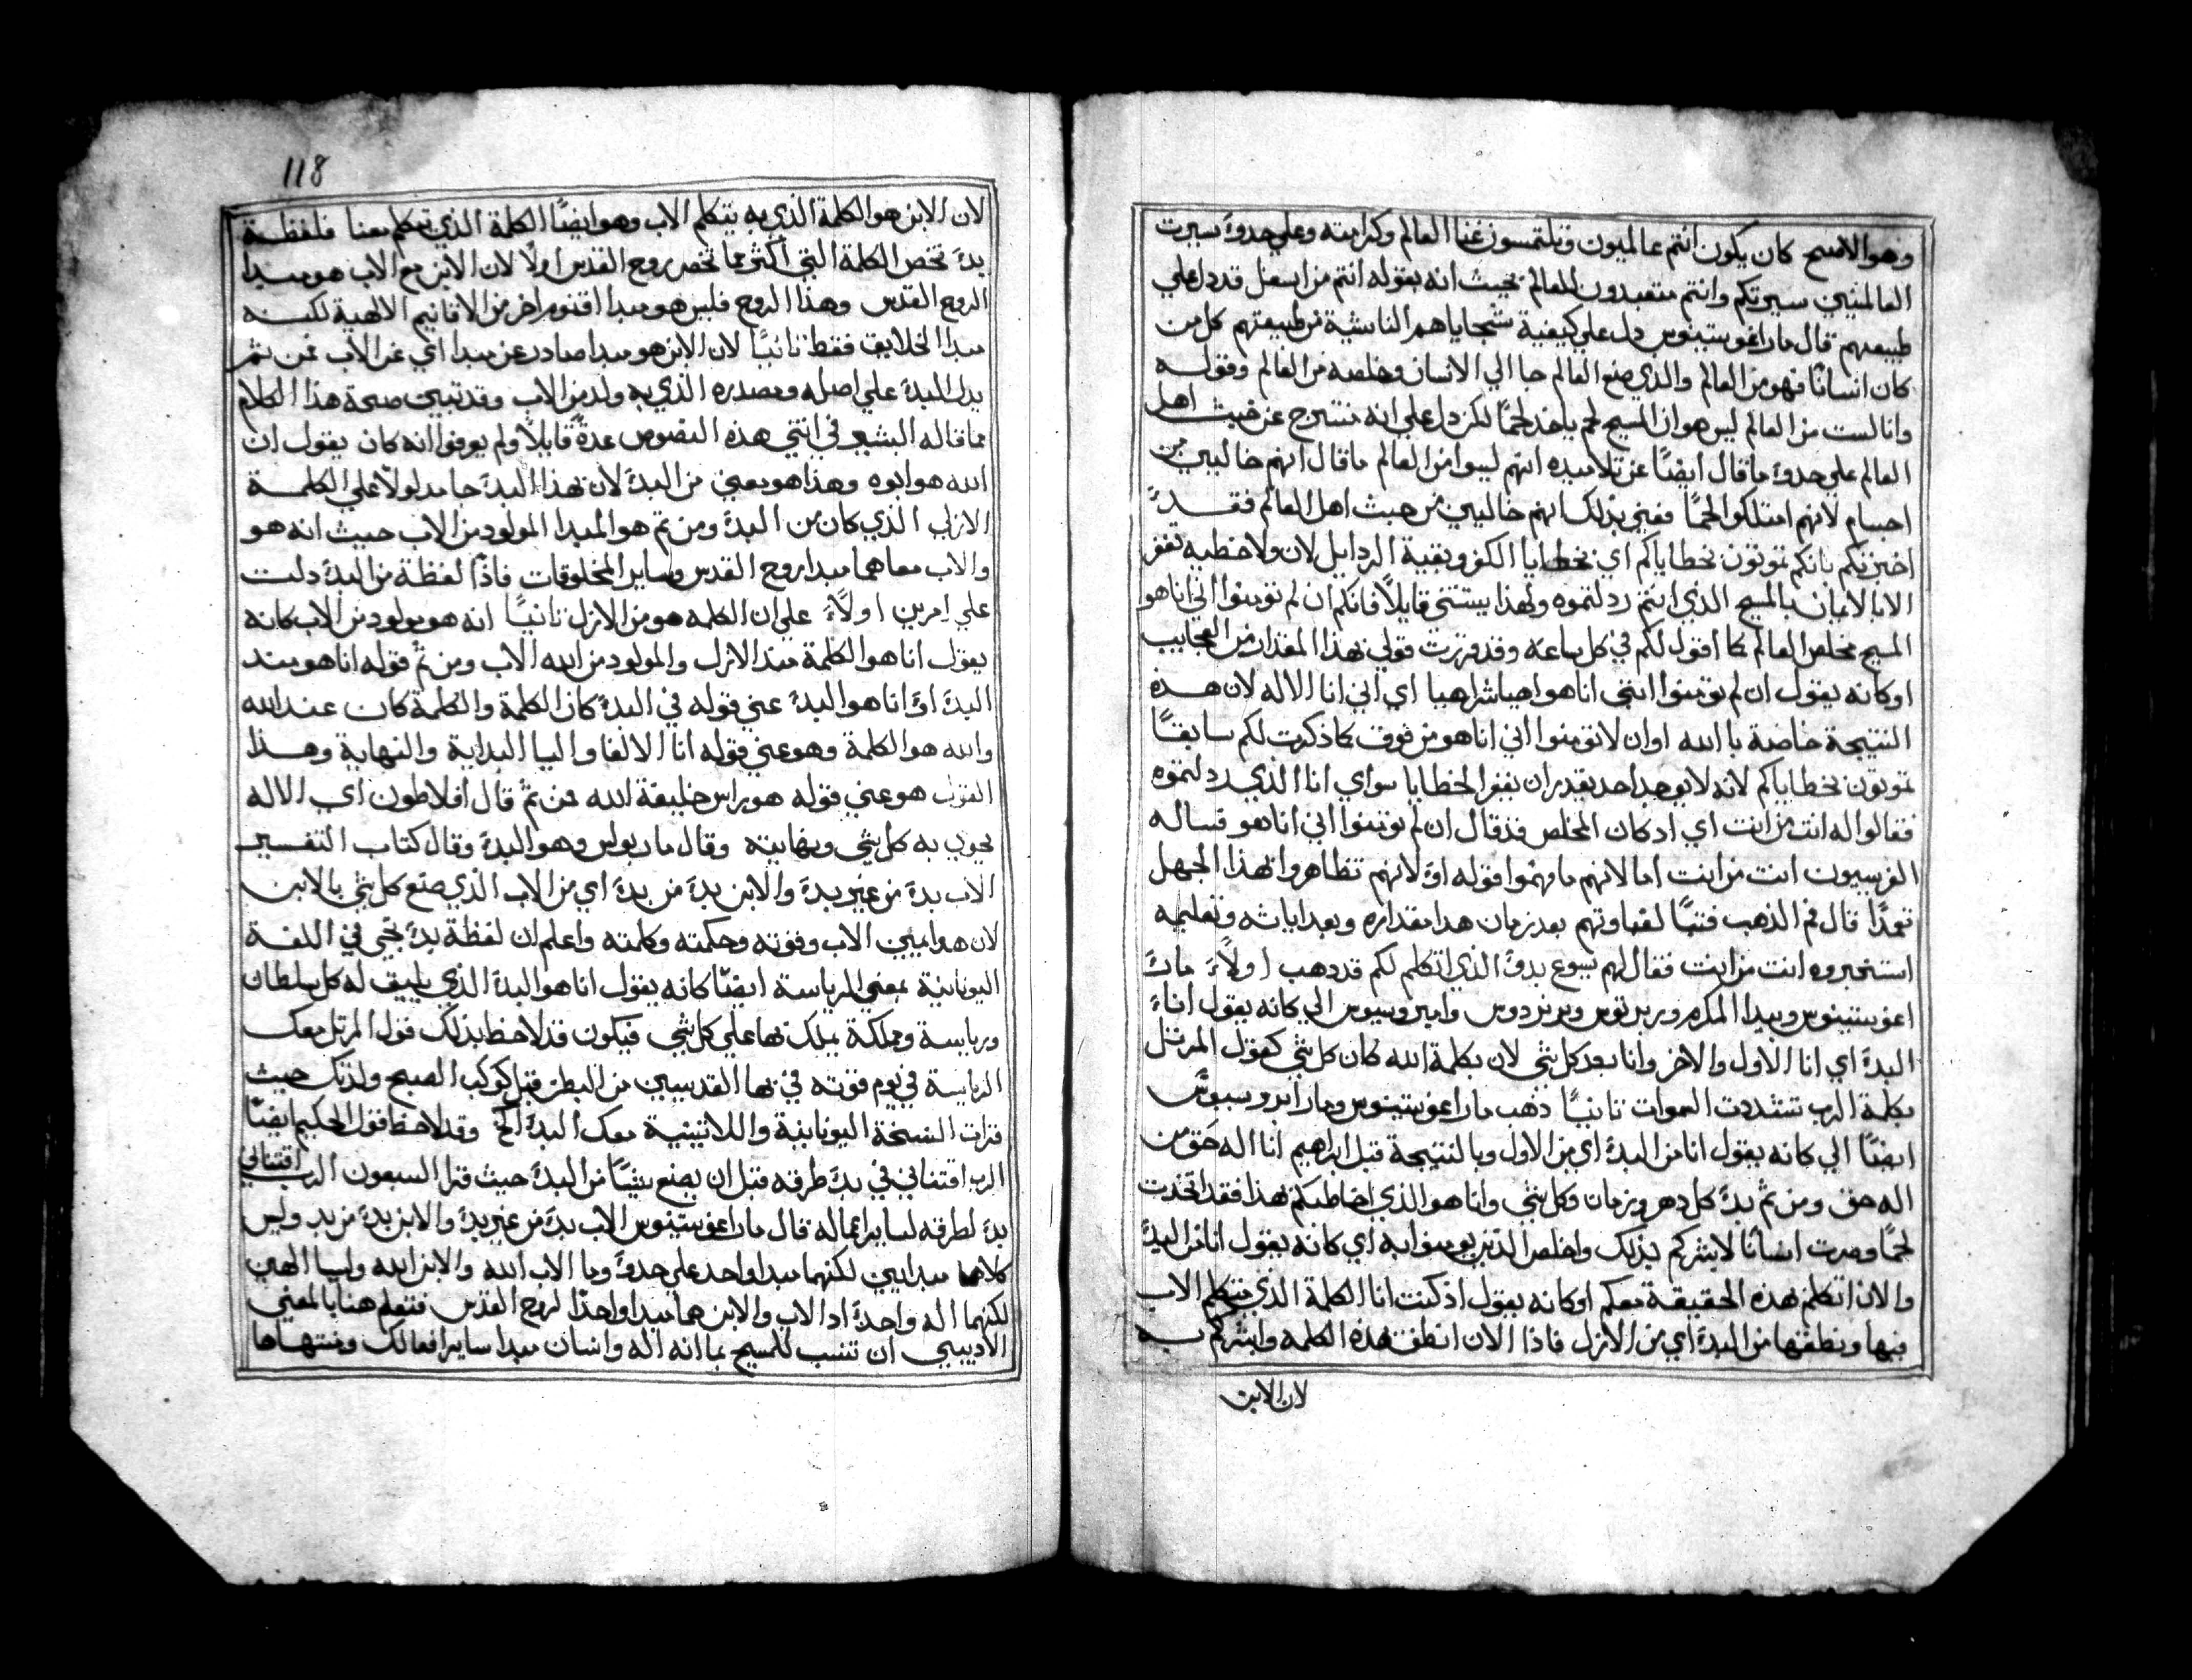 وهو الاصح كان يكون انتم عالميون وتلتمسون غنا العالم وكرامته وعلي حدوة سيرت
العالمين سيرتكم وانتم متعبدون للعالم بحيث انه بقوله انتم من اسفل قد دل علي
طبيعتهم قال مار اغوستينوس دل علي كيفية سجاياهم الناشية من طبيعتهم كل من
كان انسانًا فهو من العالم والذي صنع العالم جا الي الانسان وخلصه من العالم وقوله
وانا لست من العالم ليس هو ان المسيح لم ياخد لحمًا لكن دل علي انه متسرج عن خبث اهل
العالم علي حدوة ما قال ايضًا عن تلاميده انهم ليسوا من العالم ما قال انهم خاليين من
اجسام لانهم امتلكوا لحمًا فعني بذلك انهم خاليين من خبث اهل العالم فقد
اخبرتكم بانكم تموتون بخطاياكم اي بخطايا الكفر وبقية الردايل لان ولا خطيه تغفر
الا بالايمان بالمسيح الذي انتم ردلتموه ولهذا يستثني قايلاً فانكم ان لم تومنوا اني انا هو
المسيح مخلص العالم كما اقول لكم في كل ساعة وقد قررت قولي بهذا المقدار من العجايب
او كانه يقول ان لم تومنوا انني انا هو اهيا شراهيا اي اني انا الاله لان هذه
النتيجة خاصة با الله او ان لا تومنوا اني انا هو من فوق كما ذكرت لكم سابقًا
تموتون بخطاياكم لانه لا يوجد احد يقدر ان يغفر الخطايا سواي انا الذي ردلتموه
فقالوا له انت من انت اي اد كان المخلص قد قال ان لم تومنوا اني انا هو فساله
الفرسيون انت من انت اما لانهم ما فهموا قوله او لانهم تظاهروا بهذا الجهل
تعمدًا قال فم الذهب فتبًا لغباوتهم بعد زمان هدا مقداره وبعد اياته وتعليمه
استخبروه انت من انت فقال لهم يسوع بدو الذي اتكلم لكم قد دهب اولاً مار
اغوستينوس وبيدا المكرم وبرتوس وبرنردوس وامبروسيوس الي كانه يقول انا
البدء اي انا الاول والاخر وانا بعد كل شي لان بكلمة الله كان كل شي كقول المرتل
بكلمة الرب تشددت السموات تانيًا دهب مار اغوستينوس ومار امبروسيوس
ايضًا الي كانه يقول انا من البدء اي من الاول وبالنتيجة قبل ابراهيم انا اله حق من
اله حق ومن ثم بدء كل دهر وزمان وكل شي وانا هو الذي اخاطبكم بهذا فقد اتخدت
لحمًا وصرت انسانًا لابشركم بذلك واخلص الذين يومنوا به اي كانه يقول انا من البدء
والان اتكلم بهذه الحقيقة معكم او كانه يقول اذ كنت انا الكلمة الذي يتكلم الاب
فيها ونطقها من البدء اي من الازل فاذا الان انطق بهذه الكلمة وابشركم به
لان الابن
118
لان الابن هو الكلمة الذي به يتكلم الاب وهو ايضًا الكلمة الذي تتكلم معنا فلفظة
بدء تخص الكلمة التي اكثر مما تخص روح القدس اولًا لان الابن مع الاب هو مبدا
الروح القدس وهذا الروح فليس هو مبدا اقنوم اخر من الاقانيم الالهية لكنه
مبدا الخلايق فقط تانيًا لان الابن هو مبدا صادر عن مبدا اي عن الاب فمن ثم
يدل البدء علي اصله ومصدره الذي به ولد من الاب وقد تبين صحة هذا الكلام
مما قاله البشير في انتي هذه النصوص عدة قايلاً ولم يعرفوا انه كان يقول ان
الله هو ابوه وهذا هو معني من البدء لان بهذا البدء جا مدلولاً علي الكلمة
الازلي الذي كان من البدء ومن ثم هو المبدا المولود من الاب حيث انه هو
والاب معا هما مبدا روح القدس وساير المخلوقات فاذًا لفظة من البدء دلت
علي امرين اولاً علي ان الكلمه هو من الازل تانيًا انه هو مولود من الاب كانه
يقول انا هو الكلمة منذ الازل والمولود من الله الاب ومن ثم قوله انا هو منذ
البدء او انا هو البدء عني قوله في البدء كان الكلمة والكلمة كان عند الله
والله هو الكلمة وهو عني قوله انا الالفا واليا البداية والنهاية وهذا
القول هو عني قوله هو راس خليقة الله فمن ثم قال افلاطون اي الاله
يحوي به كل شي ونهايته وقال مار بولس وهو البدء وقال كتاب التفسير
الاب بدء من غير بدء والابن بدء من بدء اي من الاب الذي صنع كل شي بالابن
لان هو يمين الاب وقوته وحكمته وكلمته واعلم ان لفظة بدء تجي في اللغة
اليونانية بمعني الرياسة ايضًا كانه يقول انا هو البدء الذي يليق له كل سلطان
ورياسة ومملكة يملك بها علي كل شي فيكون قد لاحظ بذلك قول المرتل معك
الرياسة في يوم قوته في بها القديسين من البطن قبل كوكب الصبح ولدتك حيث
قرات النسخة اليونانية واللاتينية معك البدء الخ وقد لاحظ قول الحكيم ايضًا
الرب اقتناني في بدء طرقه قبل ان يصنع شيًا من البدء حيث قرا السبعون الرب اقتناني
بدء لطرقه لساير اعماله قال مار اغوستينوس الاب بدء من غير بدء والابن بدء من بد وليس
كلاهما مبدايين لكنهما مبدا واحد علي حدوة وما الاب الله والابن الله وليسا الهين
لكنهما اله واحد اد الاب والابن هما مبدا واحدًا لروح القدس فتعلم هنا بالمعني
الادبيي ان تنسب للمسيح بما انه اله وانسان مبدا ساير افعالك ومنتهاها